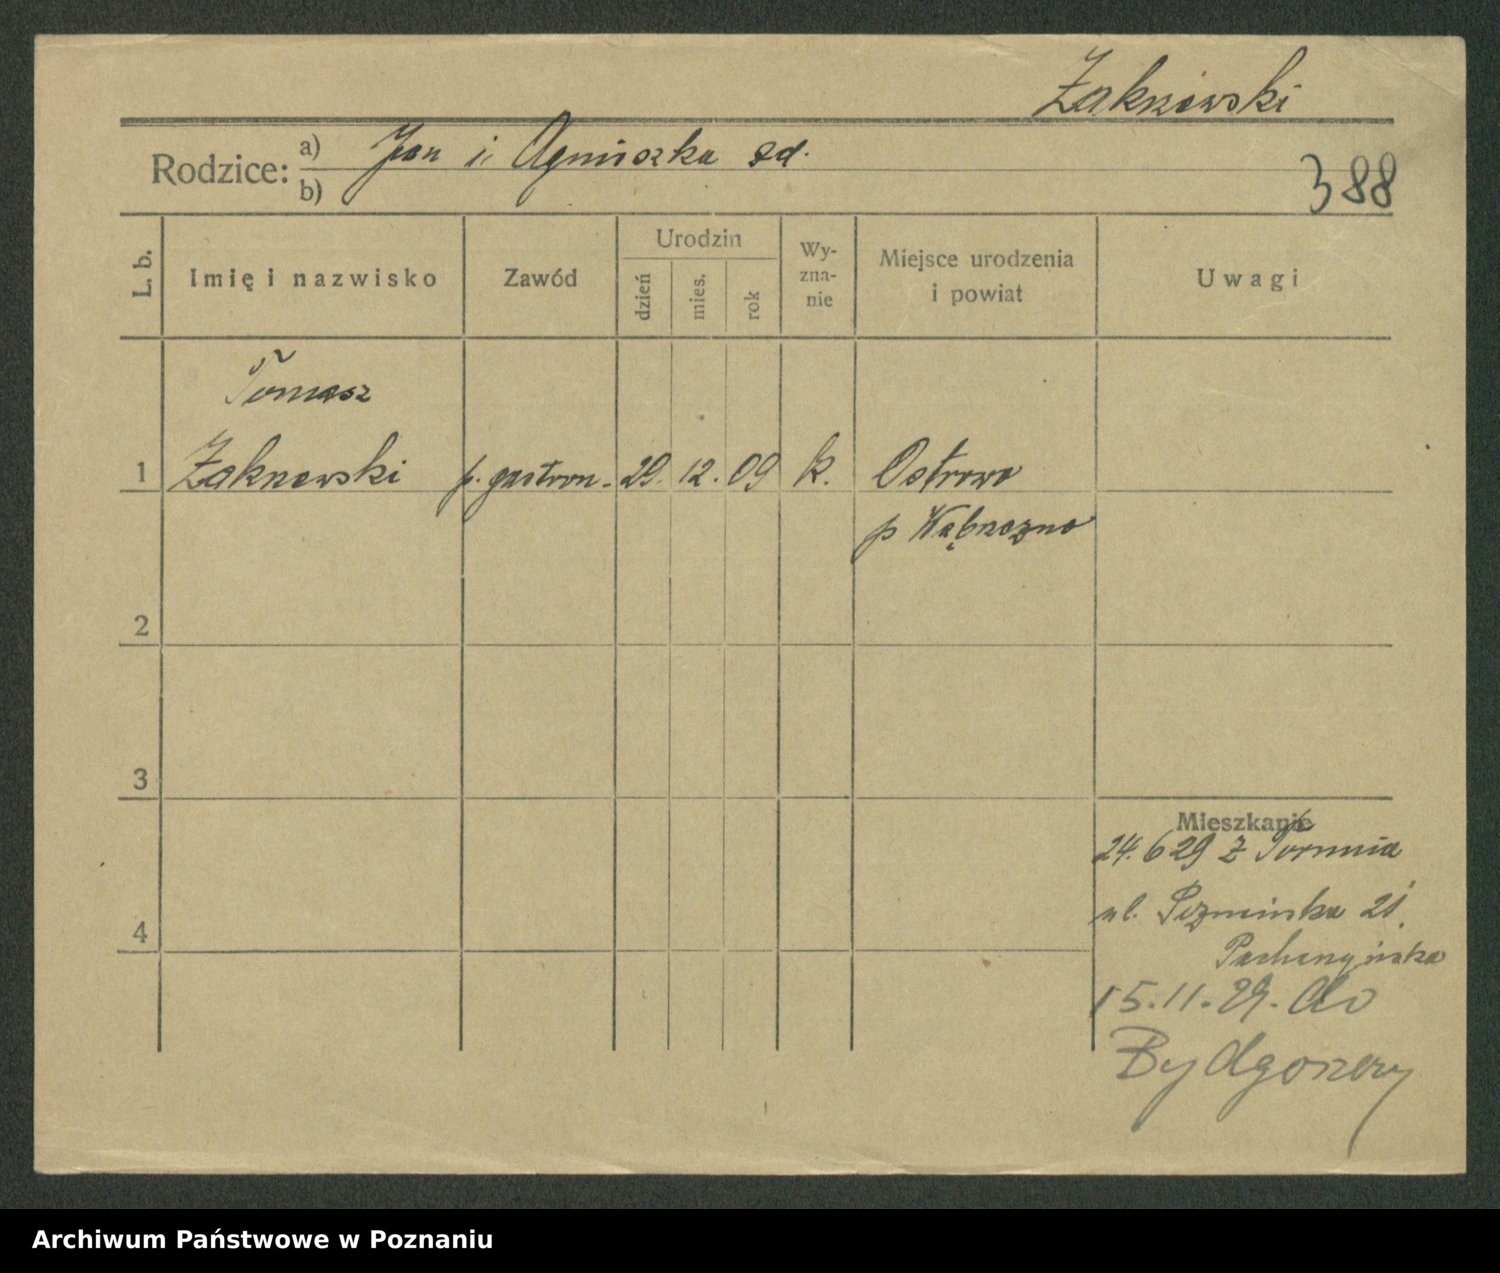 Zakrzewski
Rodzice: a) Jan i Agnieszka zd.
b)
388
L. b.
Imię i nazwisko
Zawód
Urodzin
dzień
mies.
rok
Wy-
zna-
nie
Miejsce urodzenia
i powiat
Uwagi
Tomasz
1 Zakrzewski p. gastron. 29. 12. 09 k. Ostrowo
p Wąbrzezno
2
3
Mieszkanie
24. 6 29 z Torunia
4
ul. 21.
15.11.29. do
Bydgoszczy
Archiwum Państwowe w Poznaniu